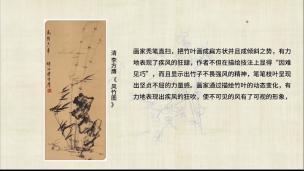 清 李方膺 《风竹图》
画家秃笔直扫，把竹叶画成扁方状并且成倾斜之势，有力
地表现了疾风的狂骤，作者不但在描绘技法上显得“因难
见巧”，而且显示出竹子不畏强风的精神，笔笔枝叶呈现
出坚贞不屈的力量感。画家通过描绘竹叶的动态变化，有
力地表现出疾风的狂吹，使不可见的风有了可视的形象，